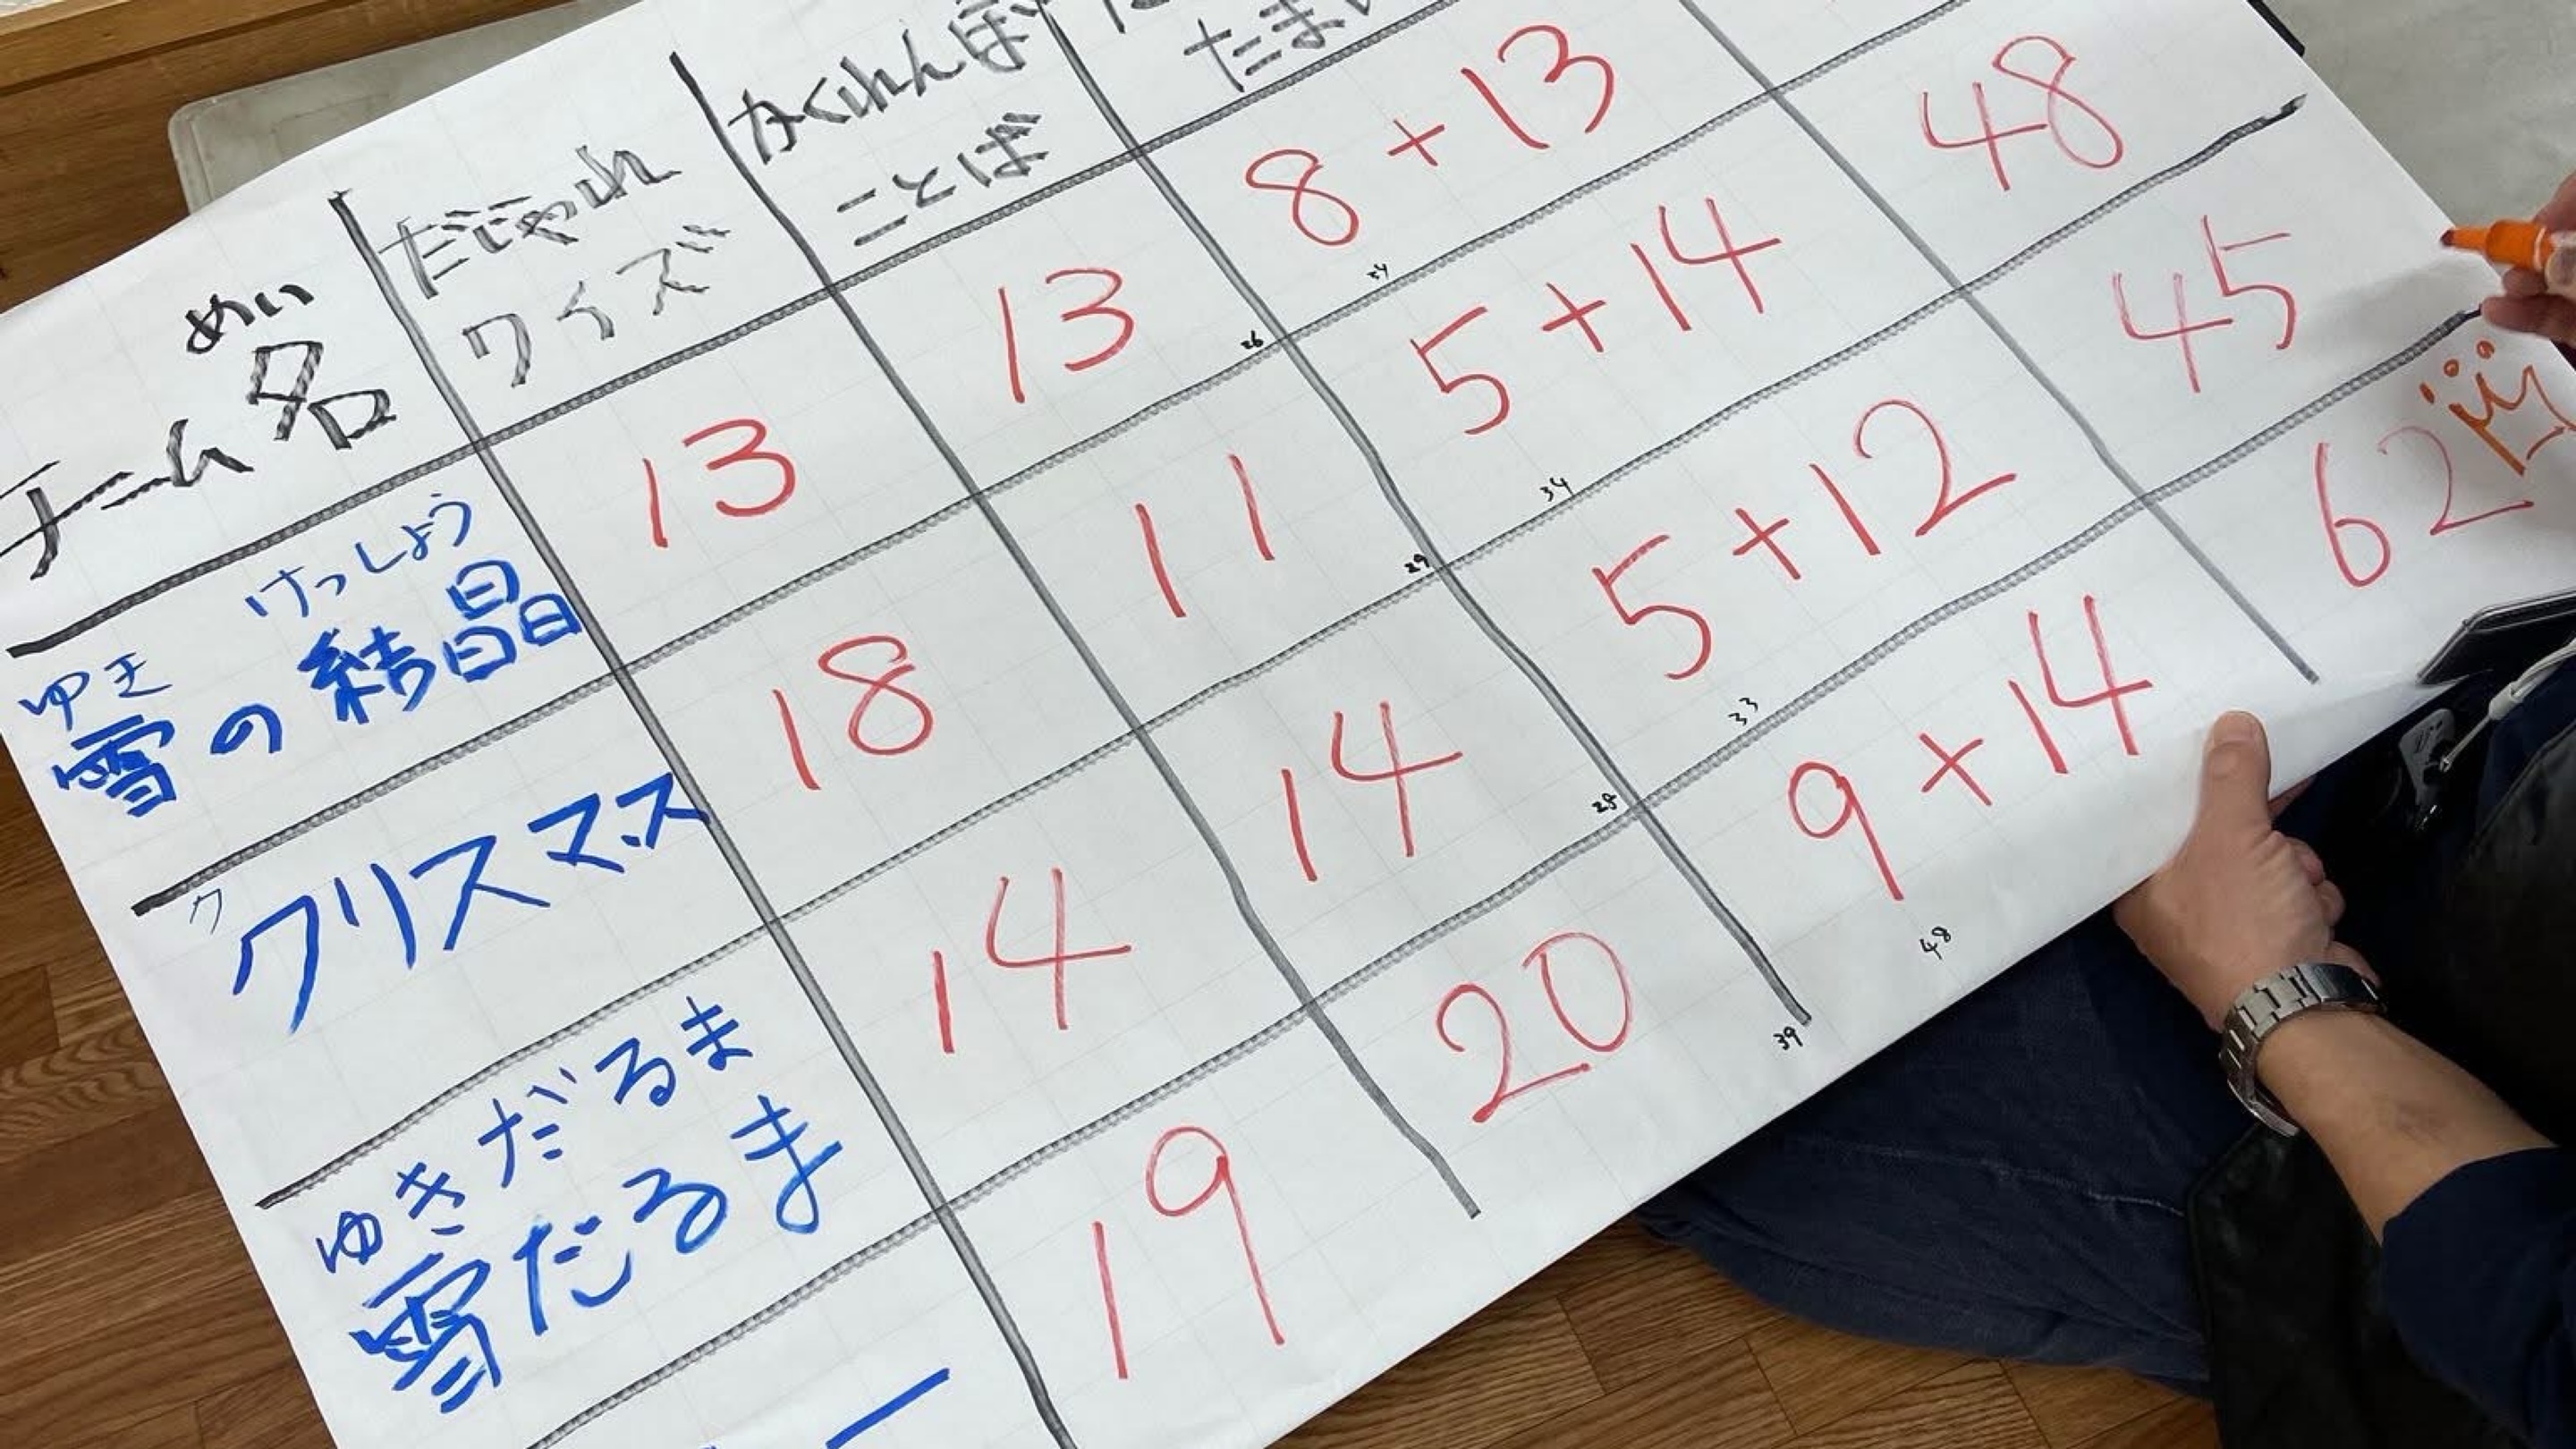 めい
チーム名
だじゃれ
クイズ
かくれんぼ
ことば
たま
けっしょう
ゆき
雪の結晶
13
13
26
8+13
34
ク
クリスマス
18
11
29
5+14
34
48
ゆきだるま
雪だるま
14
14
28
5+12
33
45
19
20
39
9+14
48
62